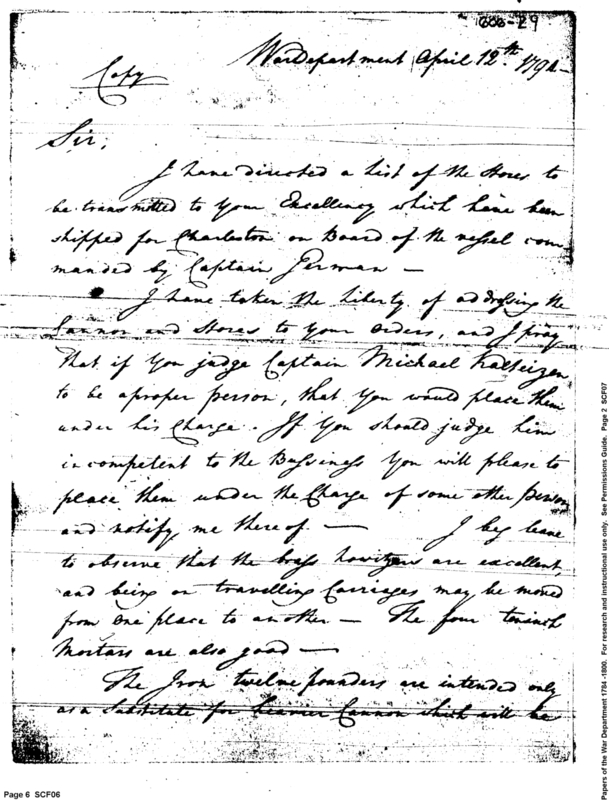 666-29
War Department April 12th. 1794-
Copy
Sir,
I have directed a List of the Stores to
be transmitted to your Excellency which have been
shipped for Charleston on Board of the vessel com
manded by Captain German —
I have taken the Liberty of addressing the
Cannon and Stores to your orders, and I pray
that if you judge Captain Michael Kalteizen
to be a proper person, that you would place them
under his Charge. If you should judge him
incompetent to the Bussiness you will please to
place them under the Charge of some other person
and notify me thereof — I beg leave
to observe that the brass howitzers are excellent,
and being on travelling Carriages may be moved
from one place to another — The four teninch
Mortars are also good —
The Iron twelve pounders are intended only
as a Substitute for heavier Cannon which will be
Page 6 SCF06
Papers of the War Department 1784 -1800. For research and instructional use only. See Permissions Guide. Page 2 SCF07